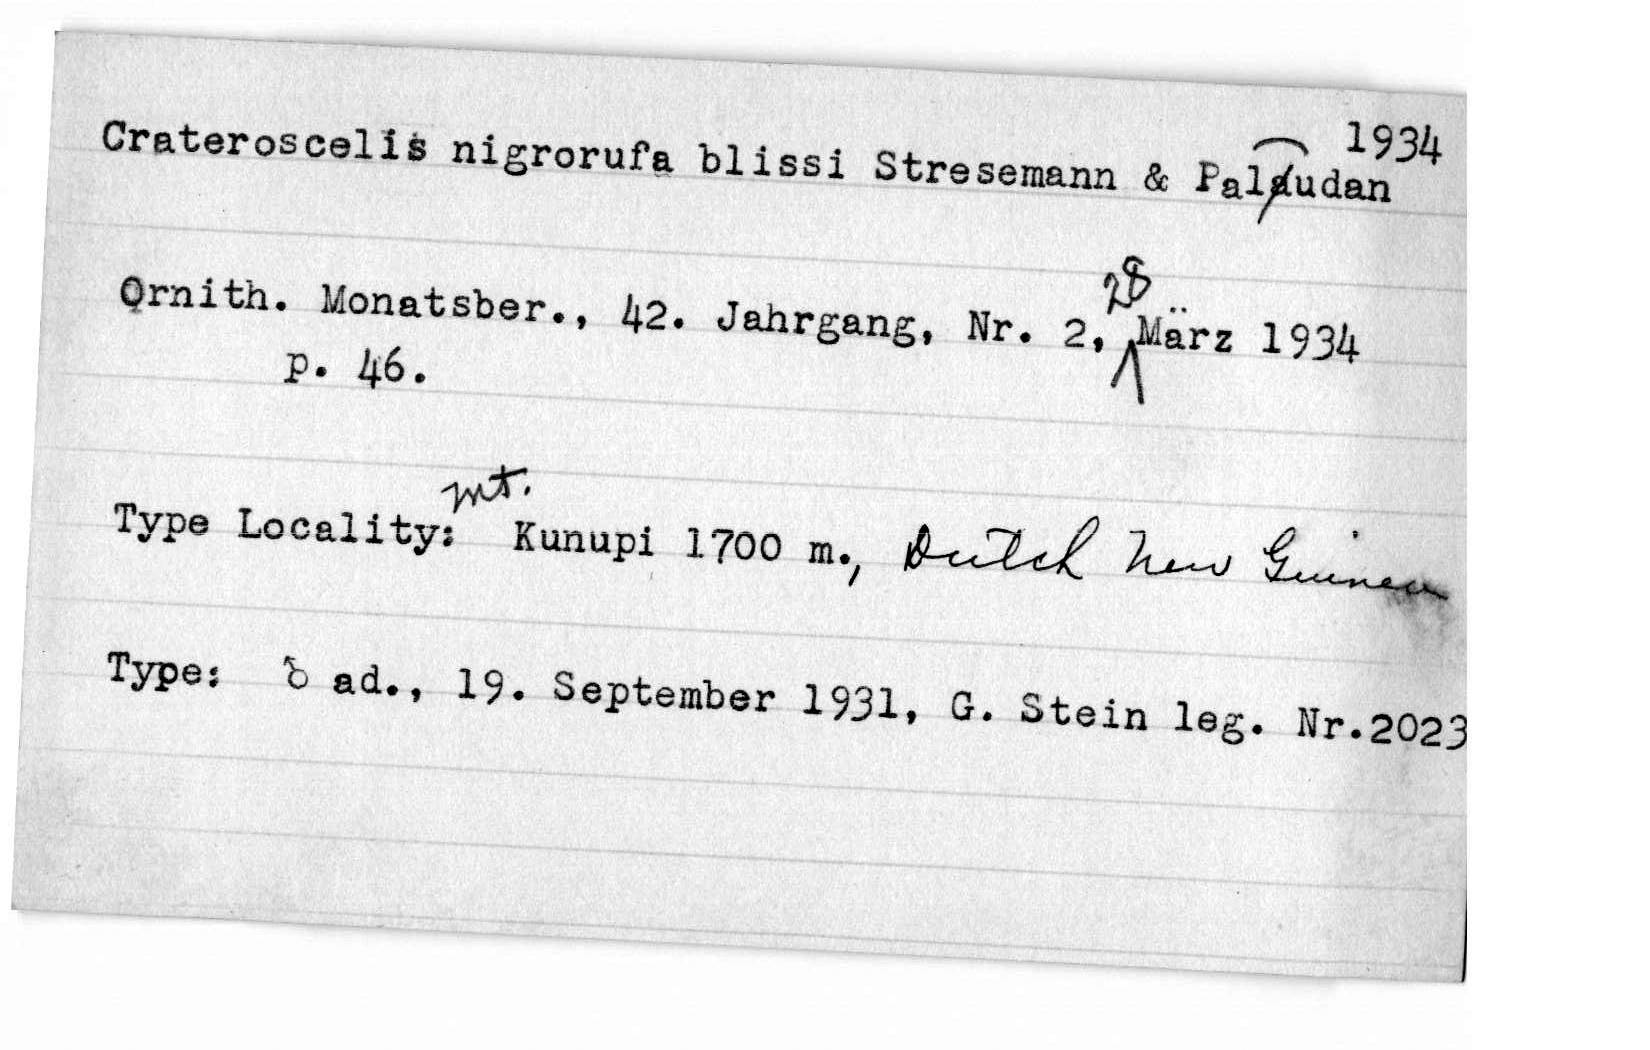 Crateroscelis nigrorufa blissi Stresemann & Paludan 1934
Ornith. Monatsber., 42. Jahrgang, Nr. 2, 28 März 1934
p. 46.
Type Locality: Mt. Kunupi 1700 m., Dutch New Guinea
Type: ♂ ad., 19. September 1931, G. Stein leg. Nr.2023